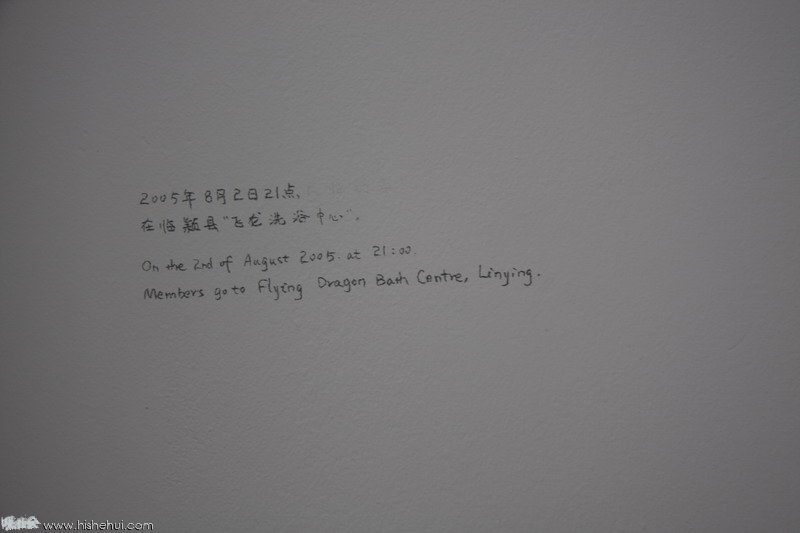 2005年8月2日21点,
在临颍县"飞龙洗浴中心"。
On the 2nd of August 2005. at 21:00.
Members go to Flying Dragon Bath Centre, Linying.
www.hishehui.com